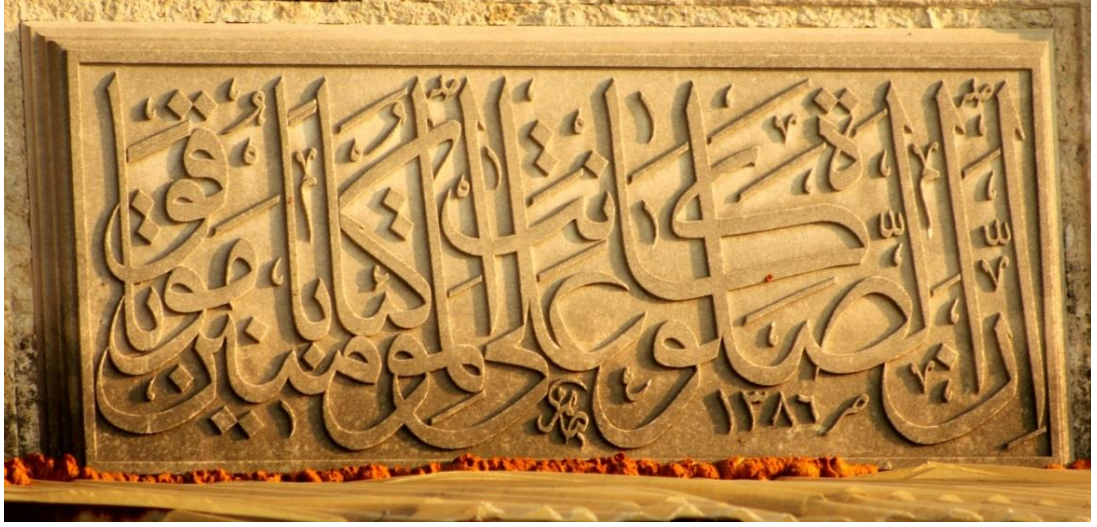 إن الصلوة كانت على المؤمنين كتابا موقوتا
١٣٨٦